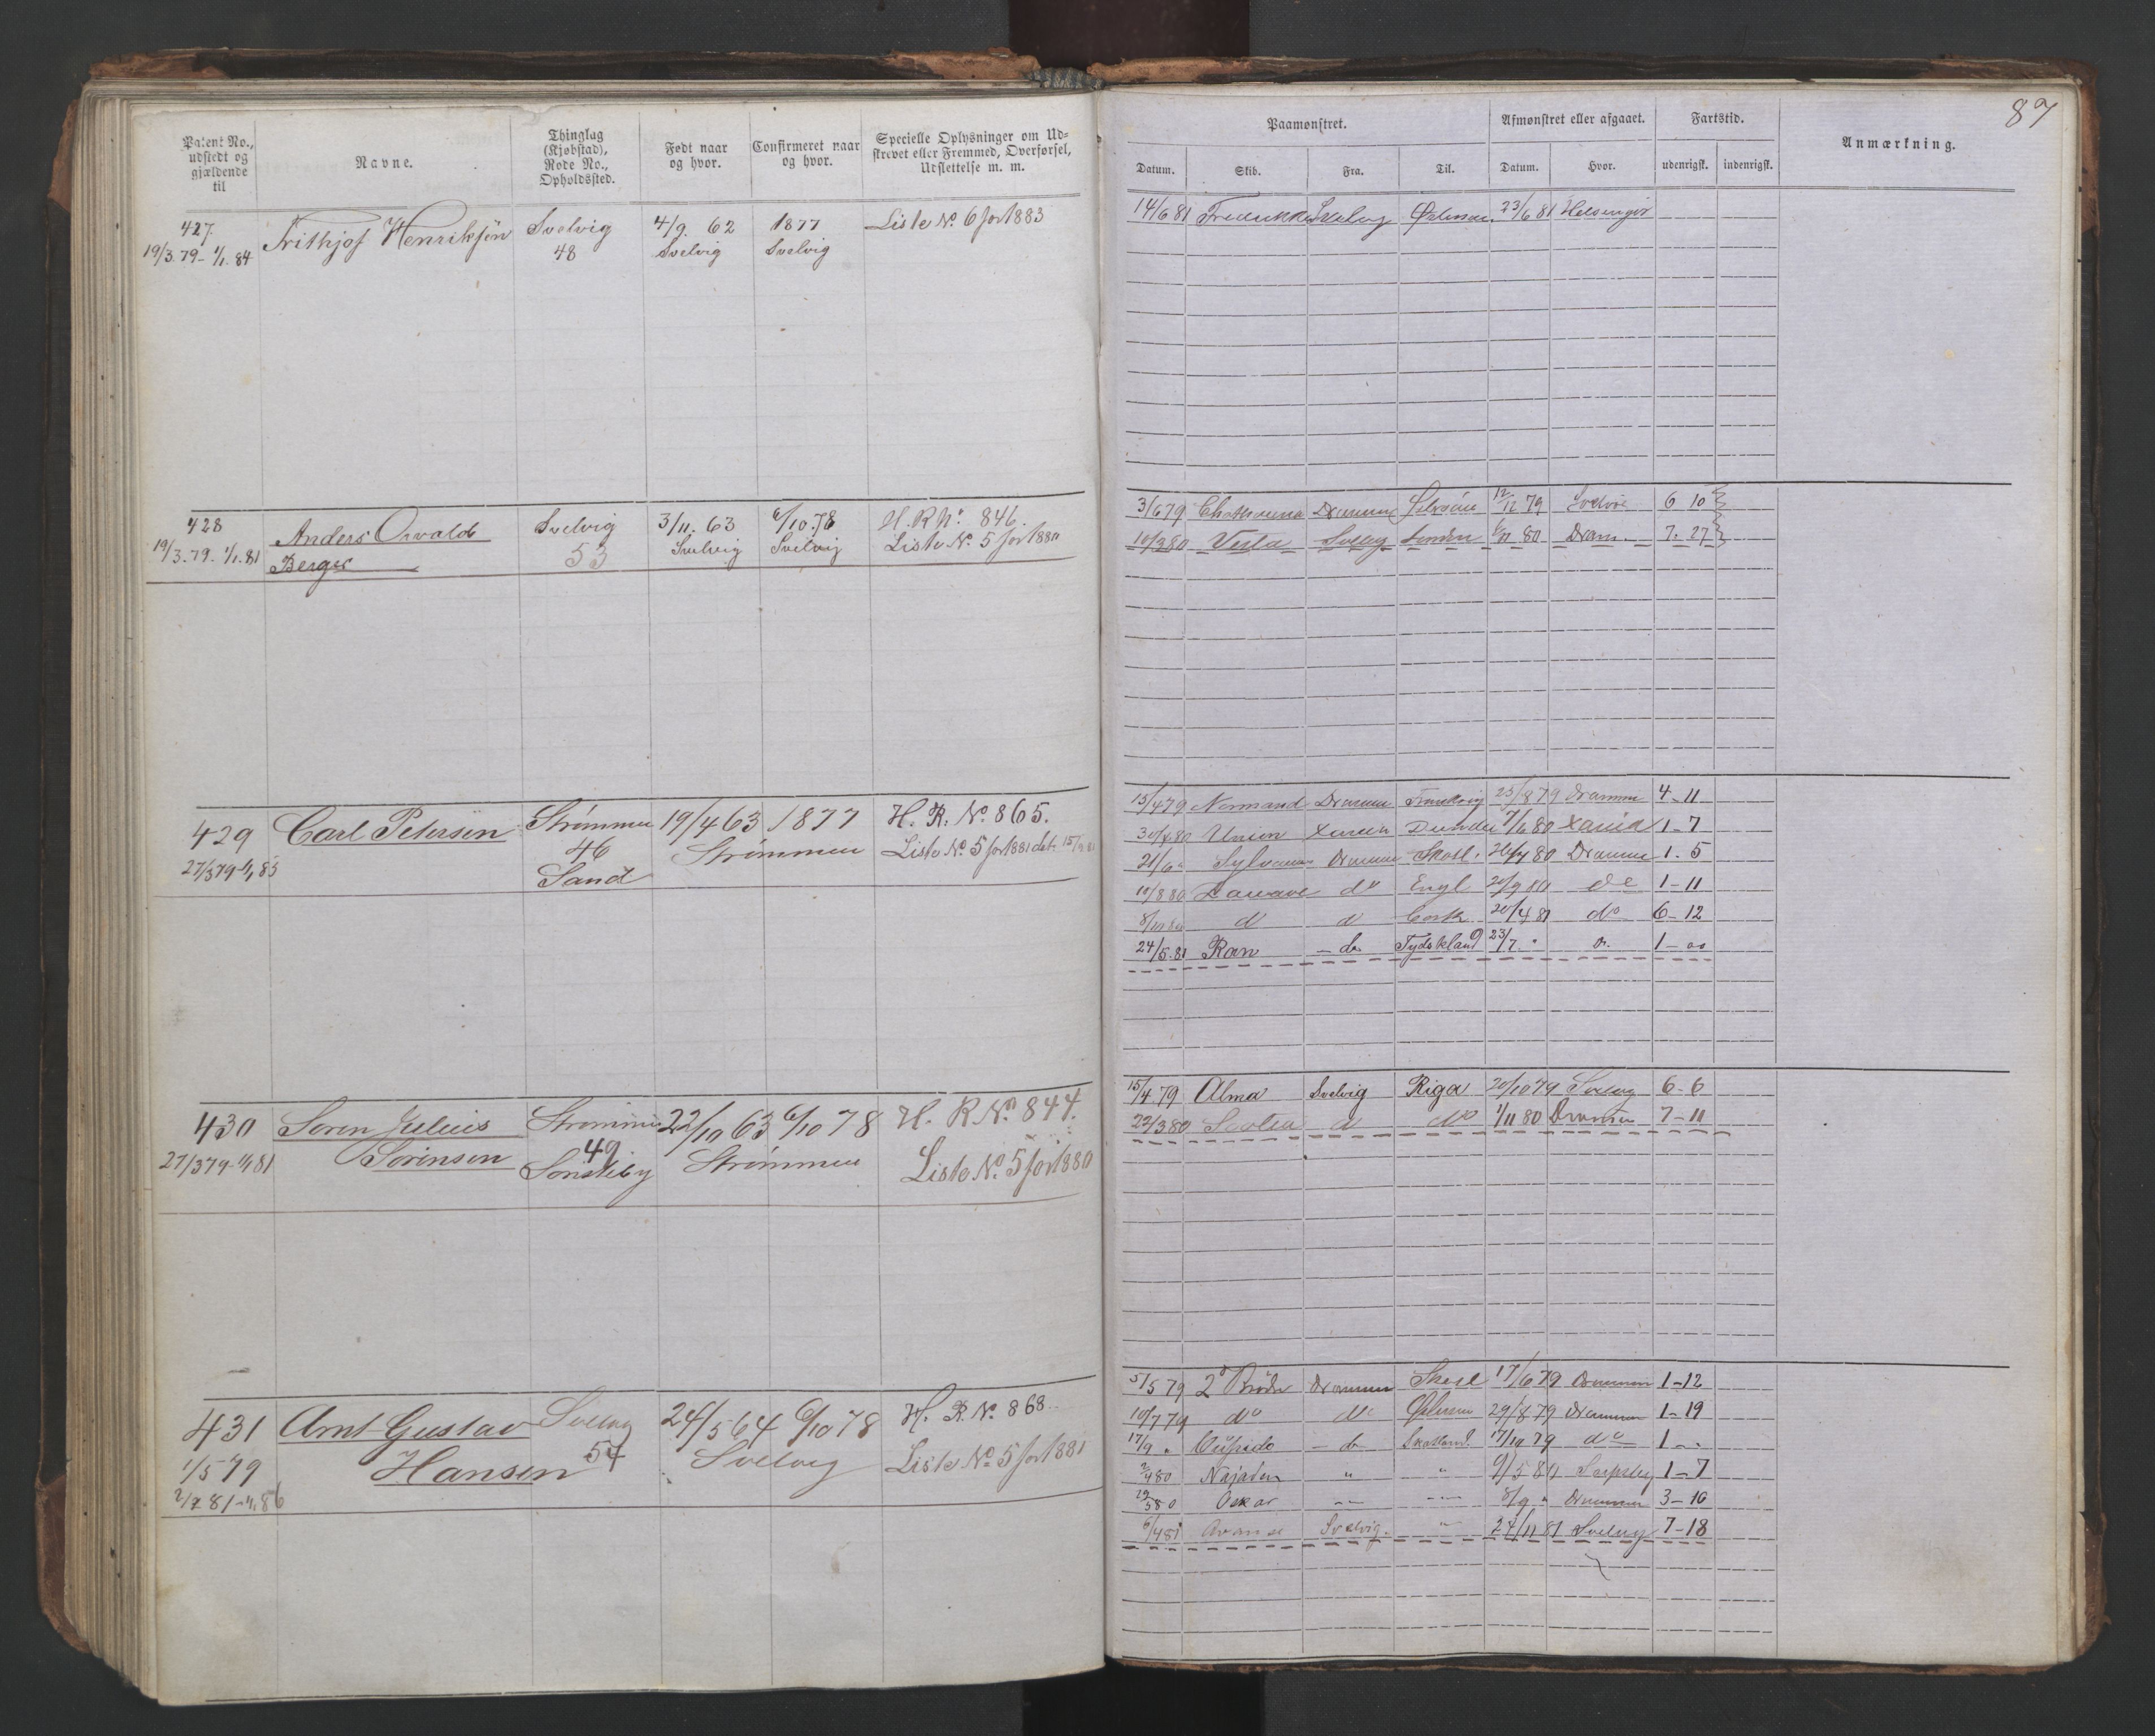 87
Patent No., udstedt og gjældende til
Navne.
Thinglag (Kjøbstad), Rode No., Opholdssted.
Født naar og hvor.
Confirmeret naar og hvor.
Specielle Oplysninger om Udskrevet eller Fremmed, Overførsel, Udslettelse m. m.
Paamønstret.
Afmønstret eller afgaaet.
Fartstid.
Anmærkning.
Datum. Skib. Fra. Til. Datum. Hvor. udenrigsk. indenrigsk.
427. Frithjof Henriksen Svelvig 4/9. 62 1877 Liste No. 6 for 1883
19/3.79- 1/1. 84 48 Svelvig Svelvig
14/6 81 Fredrikke Svelvig 23/6 81 Helsingør
428 Anders Osvald Svelvig 3/11. 63 6/10.78 H.R No. 846.
19/3.79- 1/1.81 Berger 53 Svelvig Svelvig Liste No. 5 for 1880
3/6 79 Drammen 12/12 79 6 10
10/3 80 Svelvig 80 Dram. 7. 27
429 Carl Petersen Strømmen 19/4 63 1877 H. R. No. 865.
27/3 79 46 Strømmen Liste No. 5 for 1881
Sand
15/4 79 Normand Drammen 25/8 79 Drammen 4-11
Union 80 Xania 1-7
21/6 Drammen Skotl. 80 Drammen 1. 5
10/8 80 do Engl 20/9 80 1-11
Cork 20/4 81 do 6-12
24/5.81 Ran do Tydskland 23/7. 1-00
430 Soren Julius Strømmen 22/10 63 6/10 78 H. R No. 844.
27/3 79-1/1 81 Sorensen 49 Strømmen Liste No. 5 for 1880
15/4 79 Alma Svelvig Riga 20/10 79 Svelvig 6-6
22/3 80 do 1/11 80 Drammen 7-11
431 Arnt Gustav Svelvig 24/5 64 6/10 78 H. R. No. 868.
1/5 79 Hansen 54 Svelvig Liste No. 5 for 1881
81 86
5/5 79 2 Brødre Drammen Skotl 17/6 79 Drammen 1-12
10/7 79 do do 29/8 79 Drammen 1-19
17/9 " Cupido do Skotland. 17/10 79 do 1--
2/4 80 Najaden " " 9/5 80 1-7
29/5 80 Oskar 8/9 " Drammen 3-10
6/4 81 Svelvig. 24/11 81 Svelvig 7-18